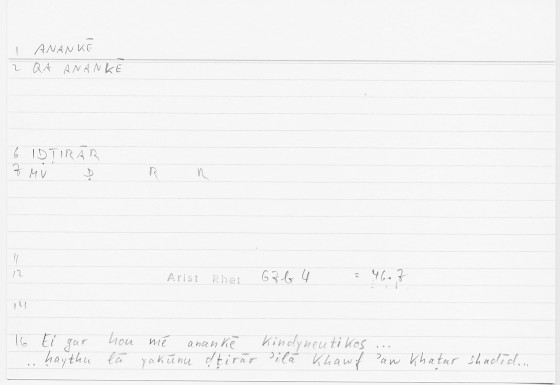 1 ANANKĒ
2 QA ANANKĒ
6 IḌṬIRĀR
7 MV Ḍ R R
11
12 Arist Rhet 67b4 = 46.7
14
16 Ei gar hou mē anankē Kindyneutikos ...
.. ḥaythu lā yakūnu ḍṭirār ʾilā Khawf ʾaw Khaṭar shadīd...